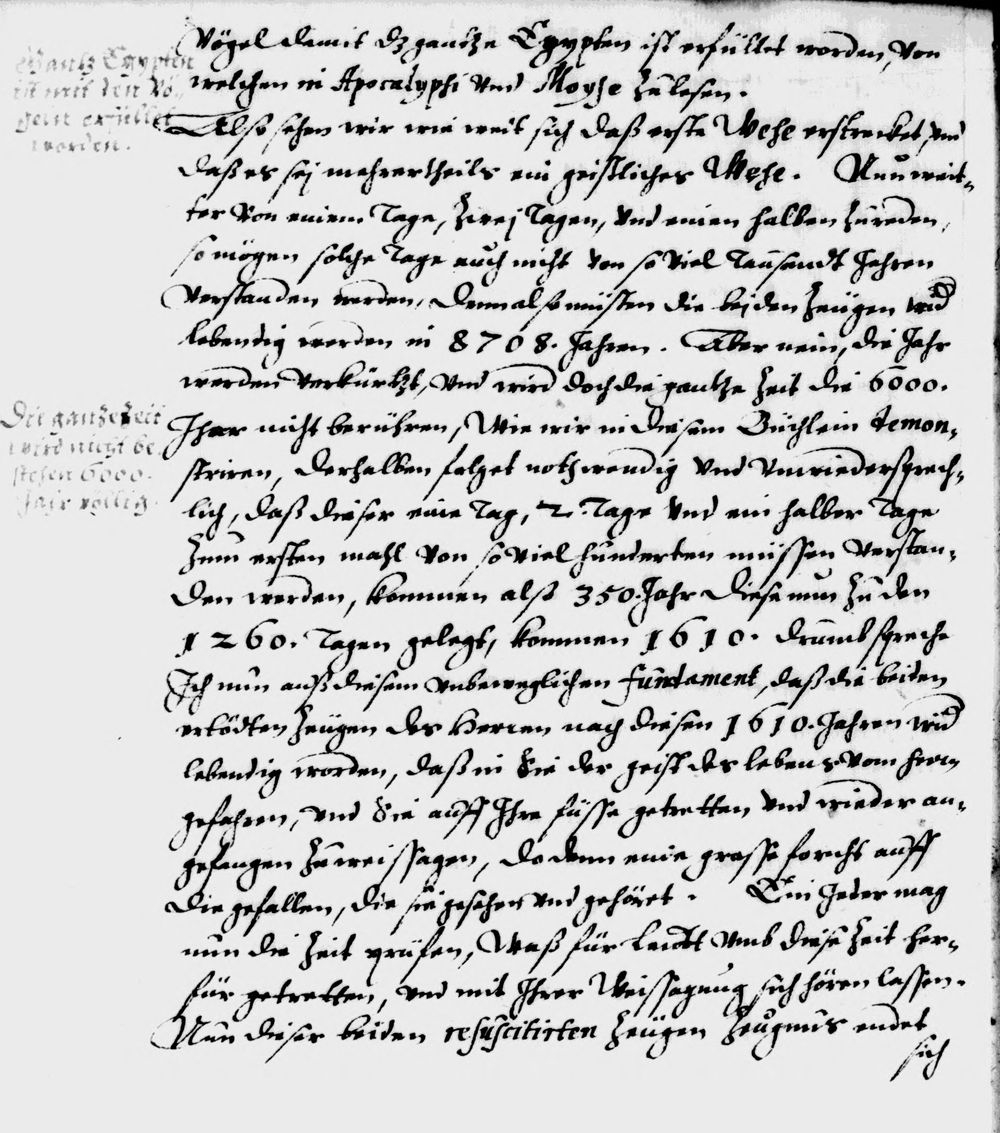 Gantz Egypten
ist mit den Vö-
geln erfüllet
worden.
Vögel damit dz gantze Egypten ist erfüllet worden, von
welchen in Apocalyphi vnd Moyse zu lesen.
Also sehen wir wie weit sich daß erste Wehe erstrecket, vnd
daß es sej mehrertheils ein geistliches Wehe. Nun weit-
ter von einem Tage, zwej Tagen, vnd einen halben zu reden,
so mögen solche Tage auch nicht von so viel Tausandt Jahren
verstanden werden, denn also müsten die beiden Zeügen wid
lebendig werden in 8708. Jahren. Aber nein, die Jahr
werden verkürtzt, vnd wird doch die gantze Zeit die 6000.
Die gantze Zeit
wird nicht be-
stehen 6000.
Jahr völlig.
Jhar nicht berühren, Wie wir in diesem Büchlein demon-
striren, derhalben folget nothwendig vnd vnwiedersprech-
lich, daß dieser eine Tag, 2. Tage vnd ein halber Tage
zum ersten mahl von so viel hunderten müssen verstan-
den werden, kommen alß 350. Jahr diese nun zu den
1260. Tagen gelegt, kommen 1610. drumb spreche
Ich nun auß diesem vnbeweglichen fundament, daß die beiden
ertödten Zeügen des Herren nach diesen 1610. Jahren wid
lebendig worden, daß in Sie der geist des lebens vom herrn
gefahren, vnd Sie auff Ihre füsse getretten vnd wieder an-
gefangen zu weissagen, do denn eine grosse forcht auff
die gefallen, die sie gesehen vnd gehöret. Ein Jeder mag
nun die Zeit prüfen, Waß für Leutt vmb diese Zeit her-
für getretten, vnd mit Ihrer Weissagung sich hören lassen.
Nun dieser beiden resuscitirten Zeügen Zeugnus endet
sich